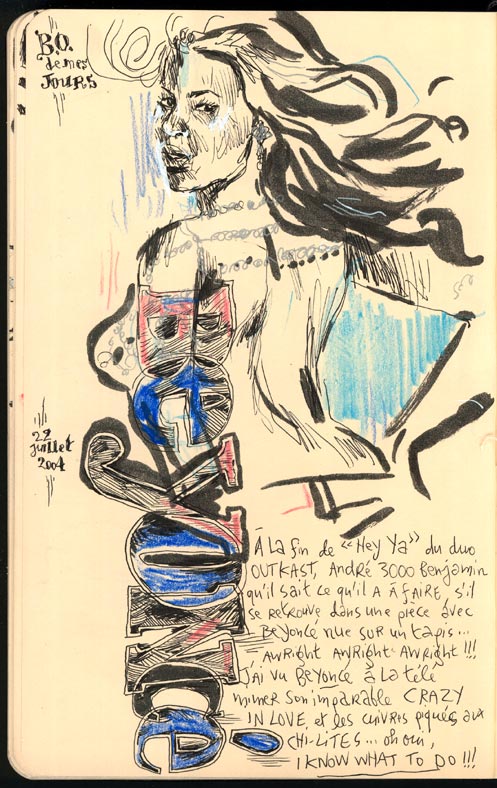 B.O.
de mes
JOURS
BEYONCé
22
juillet
2004
À La fin de "Hey Ya" du duo
OUTKAST, André 3000 Benjamin
qu'il sait ce qu'il A À fAiRE, s'il
se retrouve dans une pièce avec
BEyoncé nue sur un tapis...
AWRight AWRight-AWRight !!!
J'ai vu BEyoncé à La télé
mimer son imparable CRAZY
IN LOVE, et les cuivres piqués aux
CHi-LiTES... oh oui,
I KNOW WHAT TO DO !!!